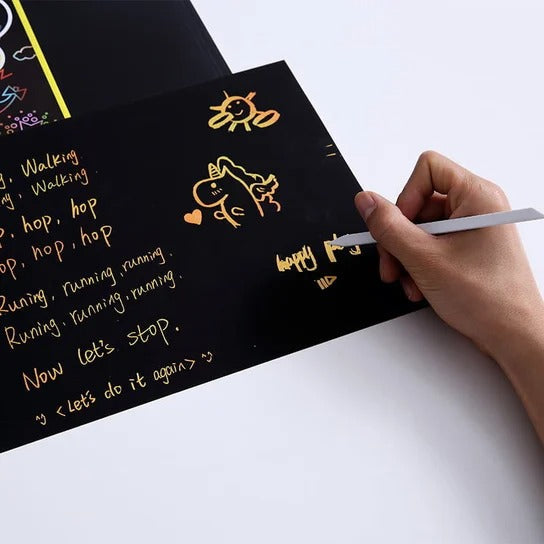 Walking.
Walking.
hop, hop
hop, hop
Runing, running, running.
Runing, running, running.
Now let's stop.
<Let's do it again>
happy